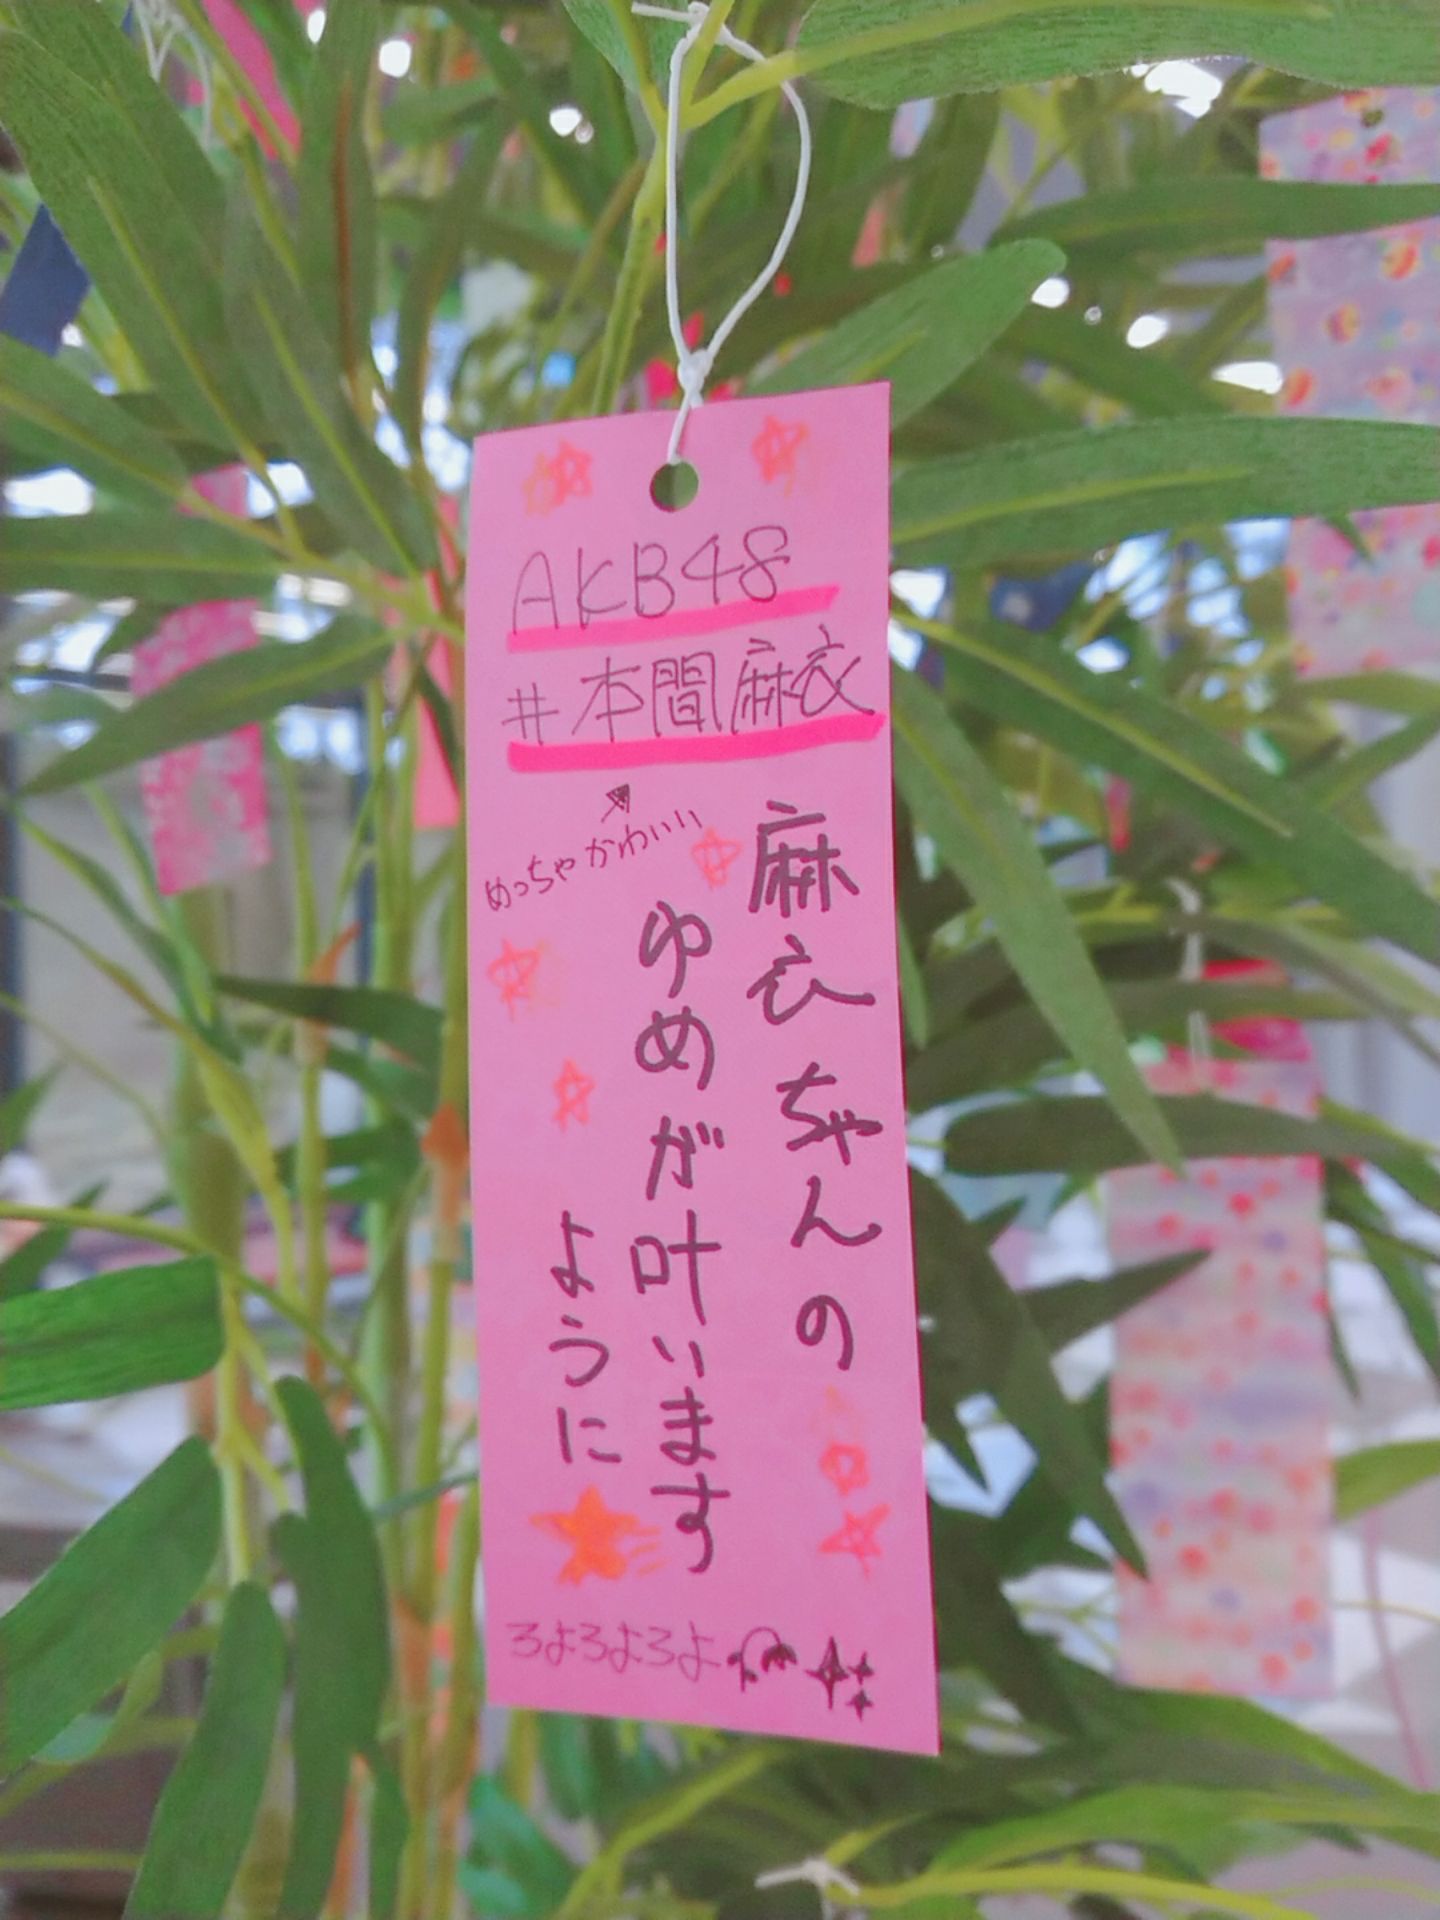 AKB48
#本間麻衣
めっちゃかわいい
麻衣ちゃんの
ゆめが叶います
ように
ろよろよろよ